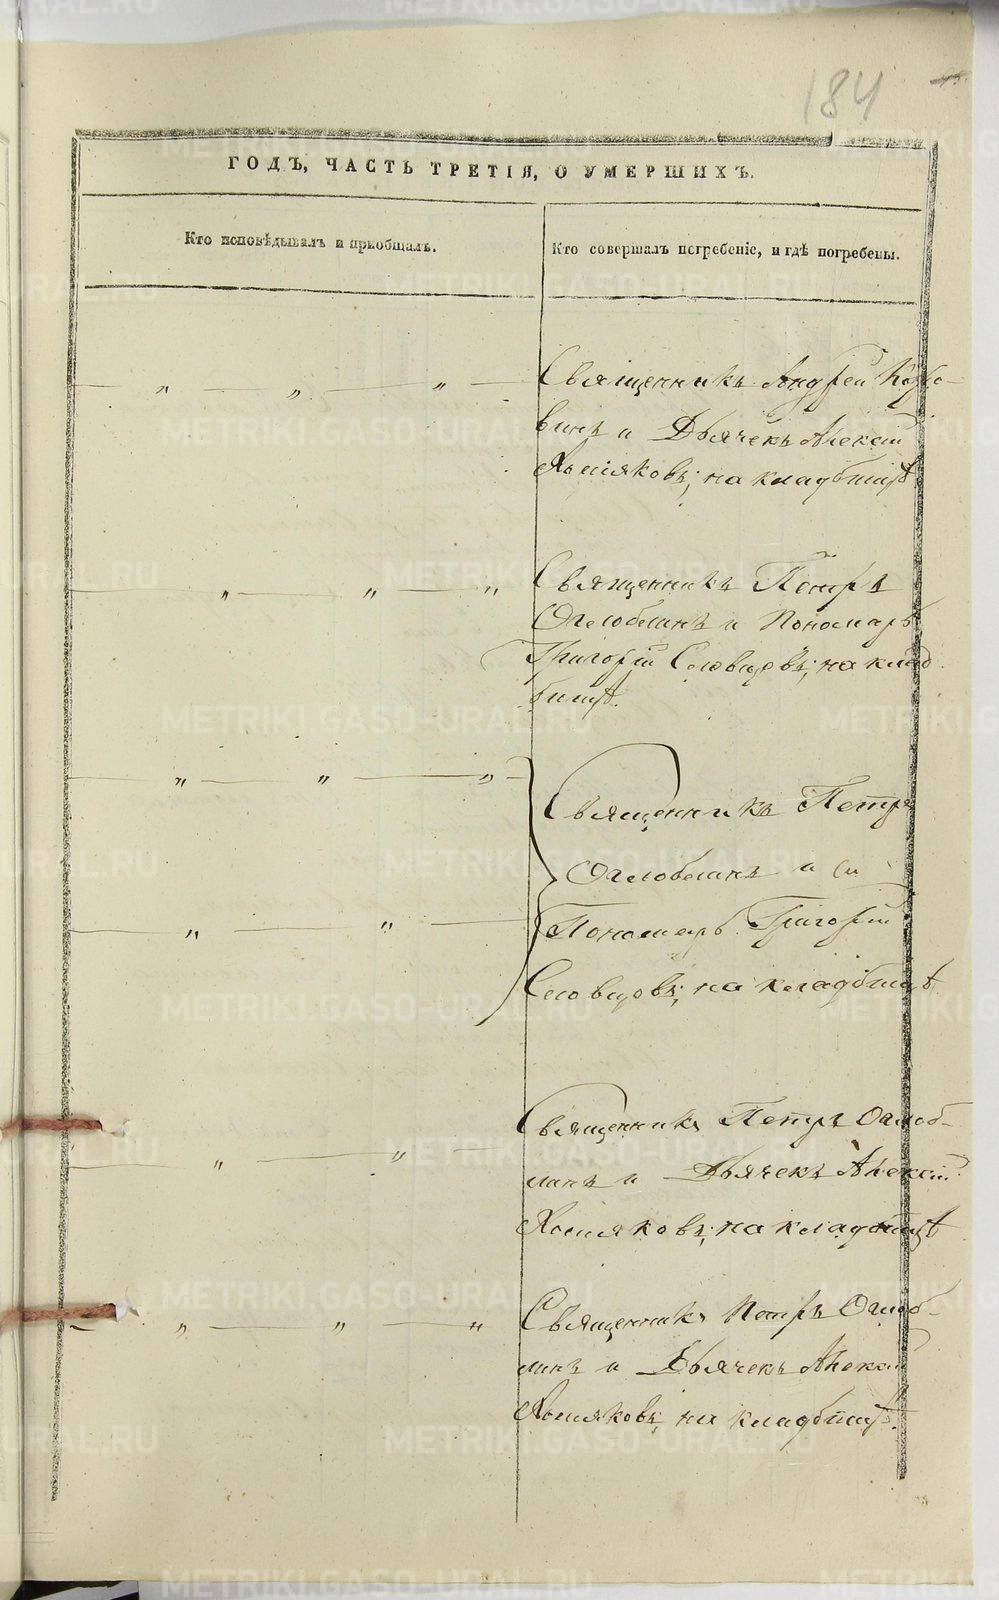 184
ГОДЪ, ЧАСТЬ ТРЕТІЯ, О УМЕРШИХЪ.
Кто исповѣдывалъ и пріобщалъ.
Кто совершалъ погребеніе, и гдѣ погребены.
Священникъ Андрей Коро-
винъ и Дьячекъ Алексій
Хомяковъ; на кладбищѣ
Священникъ Петръ
Оглоблинъ и Пономарь
Григорій Словцовъ; на клад-
бищѣ.
Священникъ Петръ
Оглоблинъ и
Пономарь Григорій
Словцовъ; на кладбищѣ
Священникъ Петръ Оглоб-
линъ и Дьячекъ Алексій
Хомяковъ; на кладбищѣ
Священникъ Петръ Оглоб-
линъ и Дьячекъ Алексій
Хомяковъ, на кладбищѣ.
METRIKI.GASO-URAL.RU